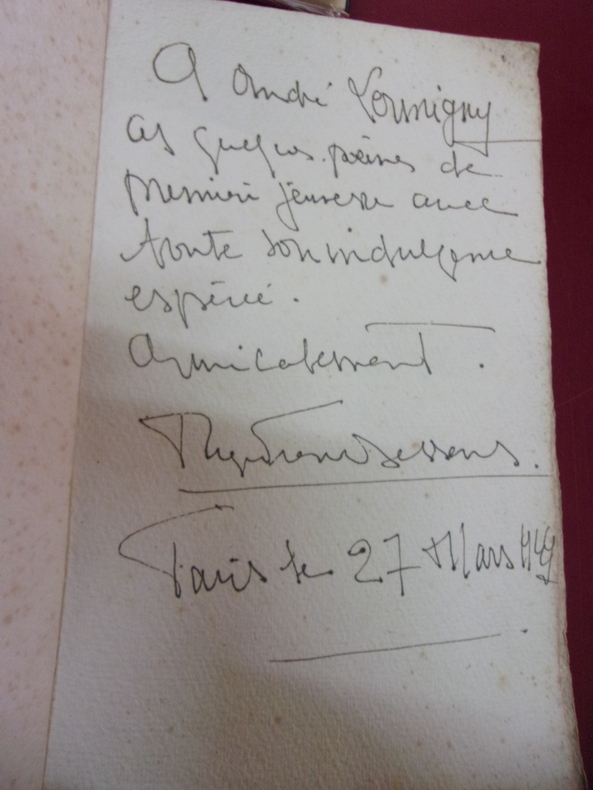 A André
ces quelques poèmes de
première jeunesse avec
toute son indulgence
espérée.
Amicalement.
Paris le 27 Mars